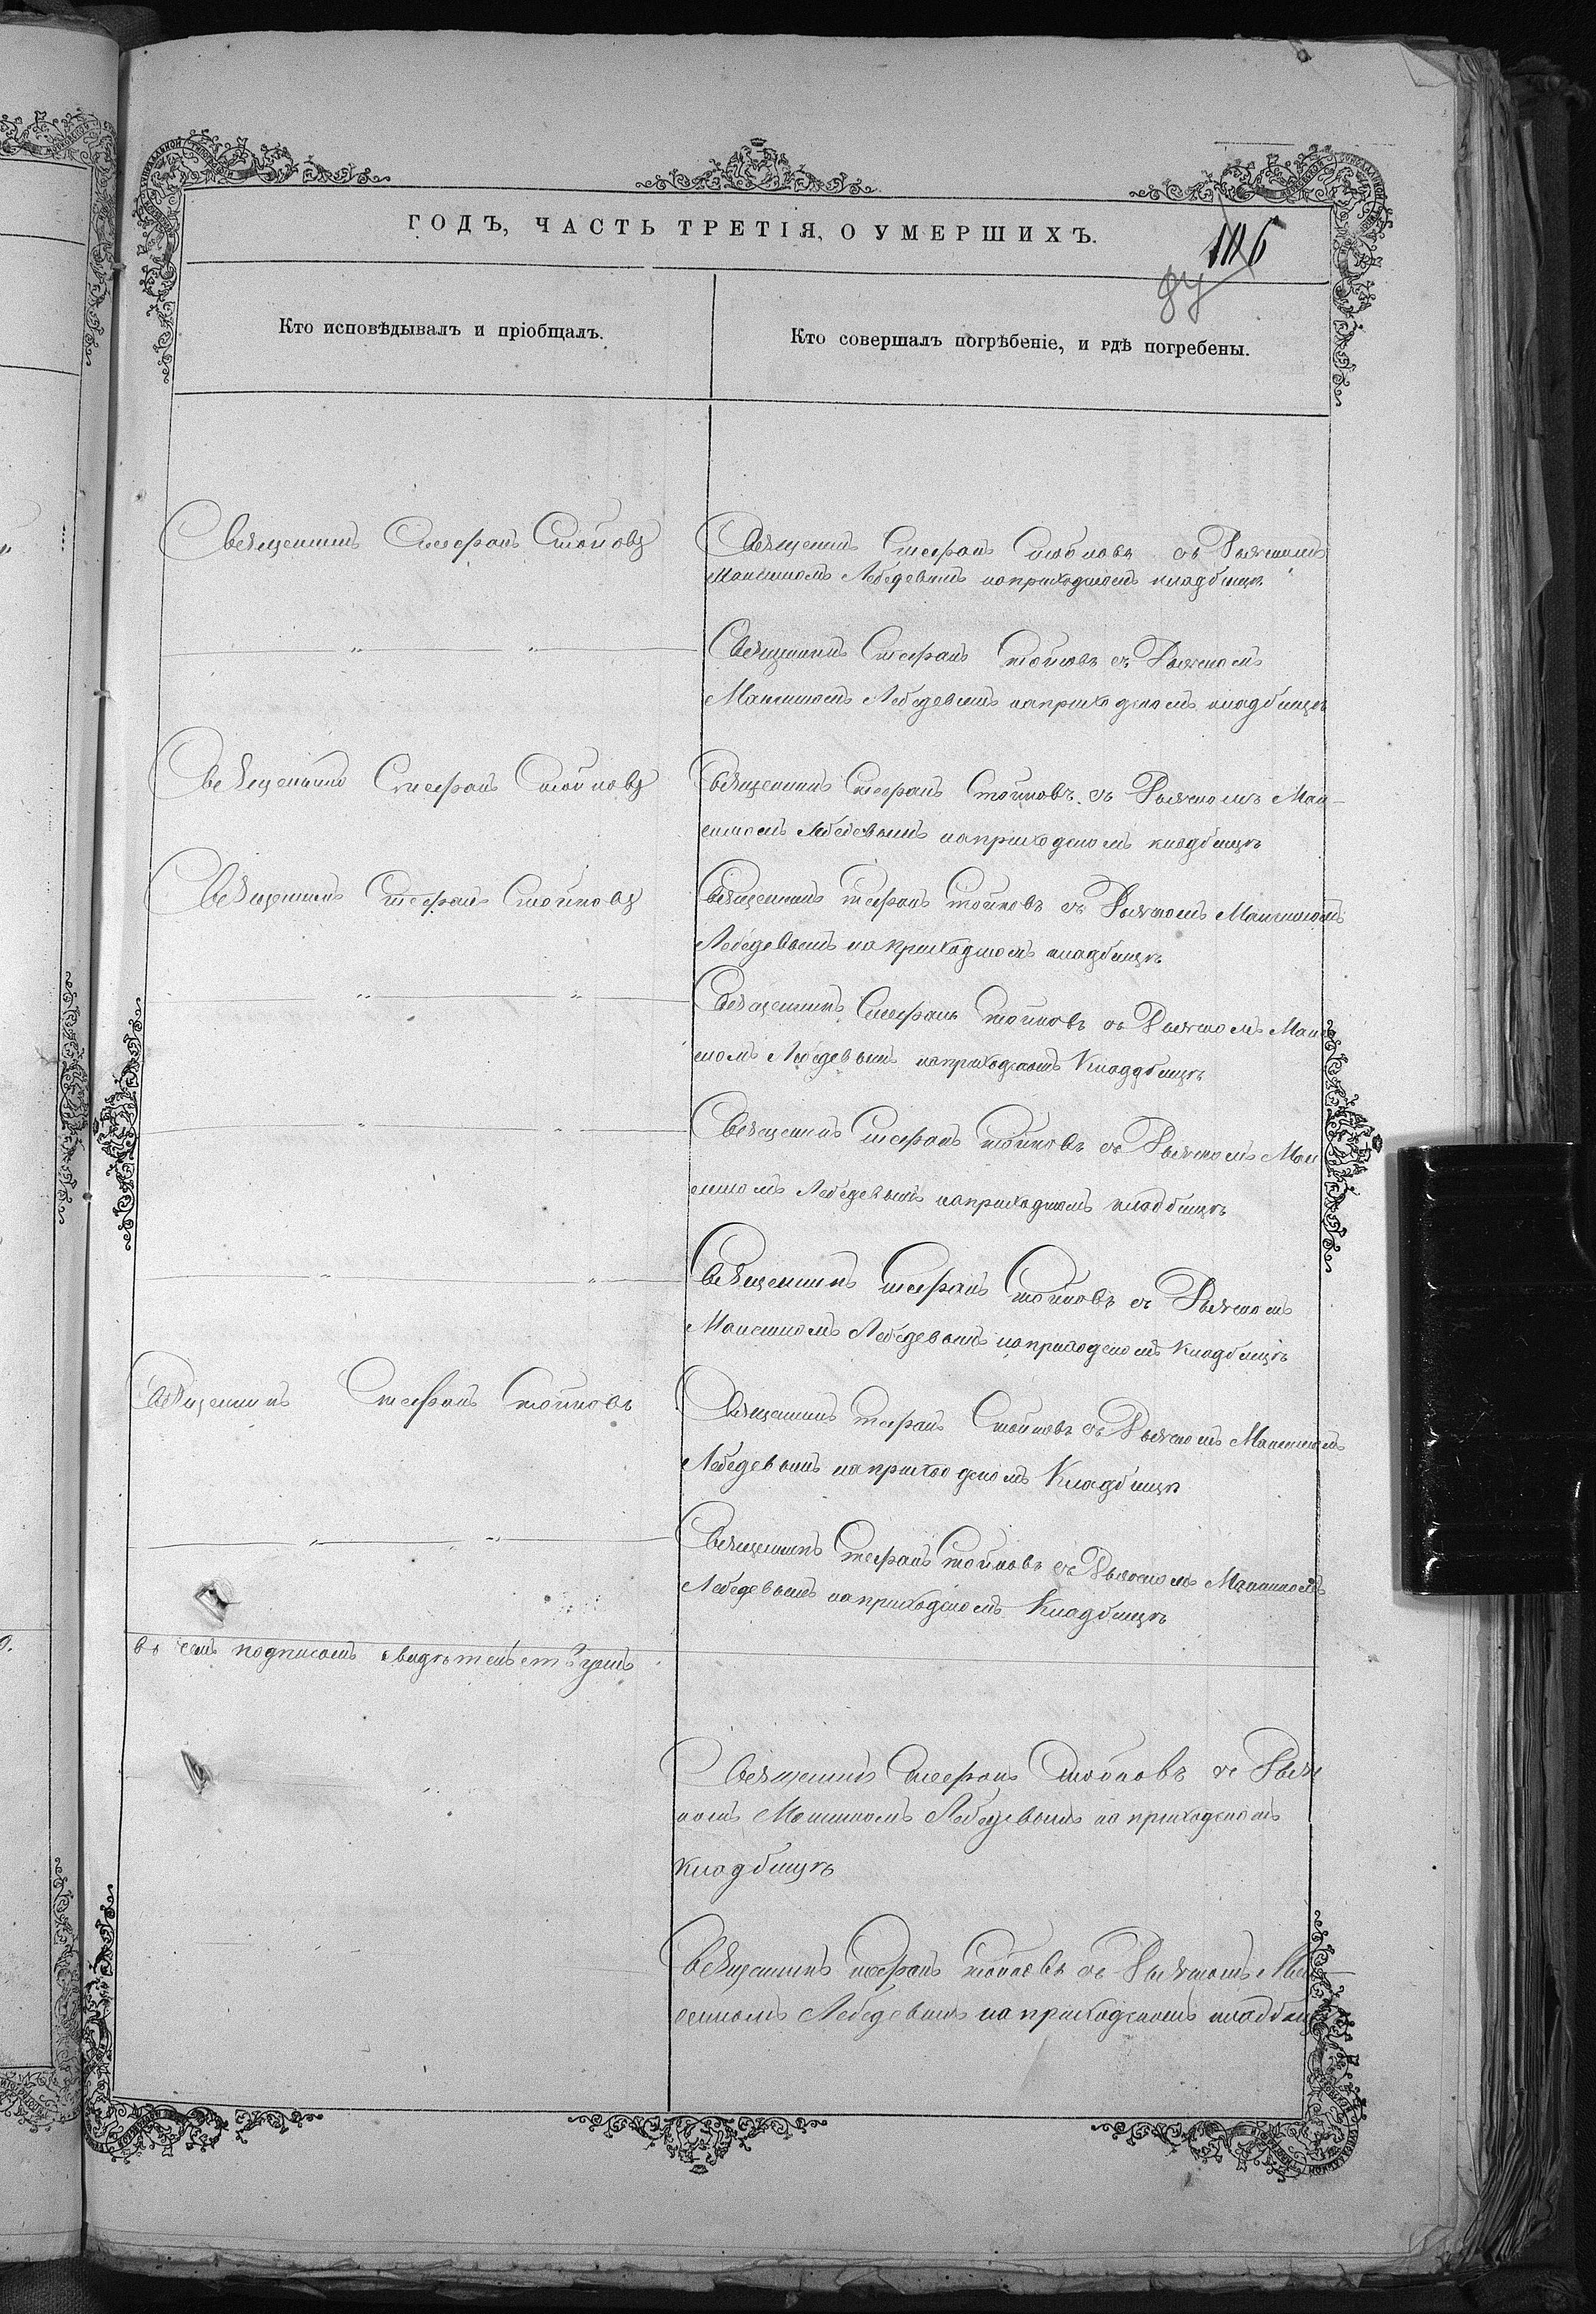 ГОДЪ, ЧАСТЬ ТРЕТІЯ, О УМЕРШИХЪ.
116
Кто исповѣдывалъ и пріобщалъ.
Кто совершалъ погрѣбеніе, и гдѣ погребены.
Священникъ Стефанъ Стойковъ
Священикъ Стефанъ Стойковъ съ Дьячкомъ
Максимомъ Лебедевымъ на приходскомъ кладбищѣ
— „ — „ —
Священикъ Стефанъ Стойковъ съ Дьячкомъ
Максимомъ Лебедевымъ на приходскомъ кладбищѣ
Священникъ Стефанъ Стойковъ
Священикъ Стефанъ Стойковъ съ Дьячкомъ Мак-
симомъ Лебедевымъ на приходскомъ кладбищѣ
Священникъ Стефанъ Стойковъ
Священикъ Стефанъ Стойковъ съ Дьячкомъ Максимомъ
Лебедевымъ на приходскомъ кладбищѣ
— „ — „ —
Священикъ Стефанъ Стойковъ съ Дьячкомъ Макси
момъ Лебедевымъ на приходскомъ Кладбищѣ
— „ — „ —
Священикъ Стефанъ Стойковъ съ Дьячкомъ Мак
симомъ Лебедевымъ на приходскомъ кладбищѣ
— „ — „ —
Священикъ Стефанъ Стойковъ съ Дьячкомъ
Максимомъ Лебедевымъ на приходскомъ Кладбищѣ
Священикъ Стефанъ Стойковъ
Священикъ Стефанъ Стойковъ съ Дьячкомъ Максимомъ
Лебедевымъ на приходскомъ Кладбищѣ
— „ — „ —
Священикъ Стефанъ Стойковъ съ Дьячкомъ Максимомъ
Лебедевымъ на приходскомъ Кладбищѣ
въ чемъ подписомъ свидѣтельствуемъ
Священикъ Стефанъ Стойковъ съ Дьяч
комъ Максимомъ Лебедевымъ на приходскомъ
Кладбищѣ
Священикъ Стефанъ Стойковъ съ Дьячкомъ Мак-
симомъ Лебедевымъ на приходскомъ кладбищѣ